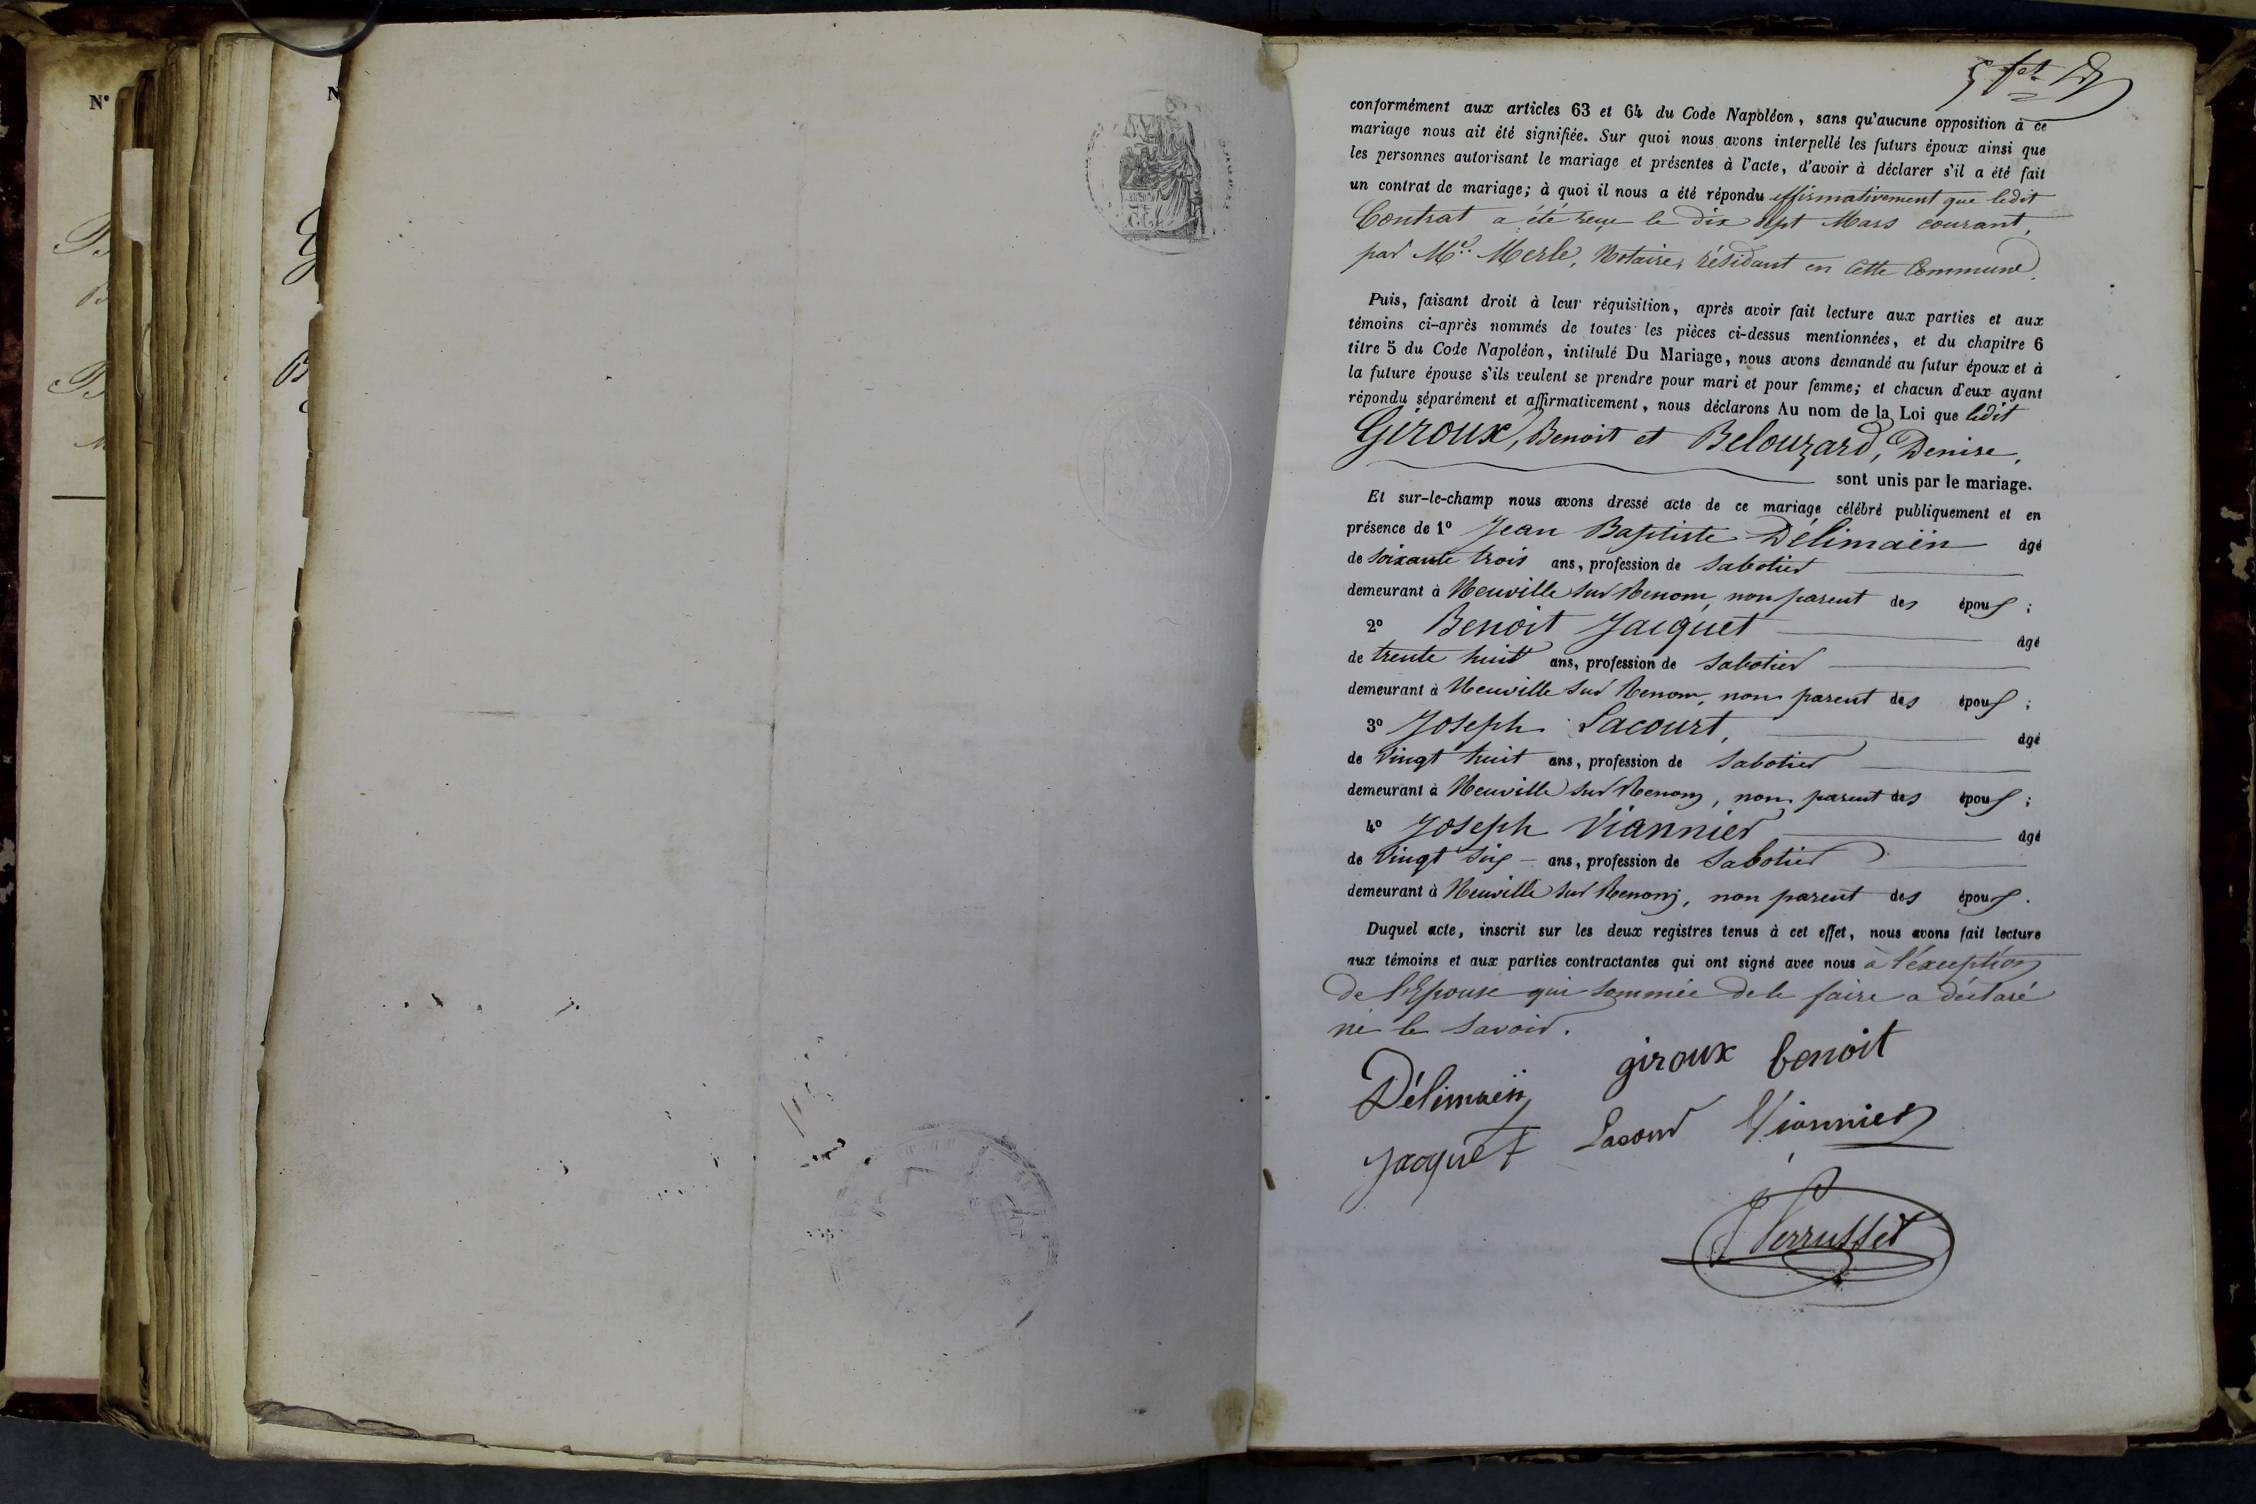 N°
N
5 fet
conformément aux articles 63 et 64 du Code Napoléon, sans qu'aucune opposition à ce
mariage nous ait été signifiée. Sur quoi nous avons interpellé les futurs époux ainsi que
les personnes autorisant le mariage et présentes à l'acte, d'avoir à déclarer s'il a été fait
un contrat de mariage; à quoi il nous a été répondu affirmativement que ledit
Contrat a été reçu le dix sept Mars courant,
par Me. Merle, Notaire, résidant en cette Commune.
Puis, faisant droit à leur réquisition, après avoir fait lecture aux parties et aux
témoins ci-après nommés de toutes les pièces ci-dessus mentionnées, et du chapitre 6
titre 5 du Code Napoléon, intitulé Du Mariage, nous avons demandé au futur époux et à
la future épouse s'ils veulent se prendre pour mari et pour femme; et chacun d'eux ayant
répondu séparément et affirmativement, nous déclarons Au nom de la Loi que ledit
Giroux, Benoit et Belouzard, Denise,
sont unis par le mariage.
Et sur-le-champ nous avons dressé acte de ce mariage célébré publiquement et en
présence de 1° Jean Baptiste Délimaën âgé
de soixante trois ans, profession de sabotier
demeurant à Neuville sur Renom, non parent des époux ;
2° Benoit Jacquet âgé
de trente huit ans, profession de sabotier
demeurant à Neuville sur Renom, non parent des époux ;
3° Joseph Lacourt, âgé
de vingt huit ans, profession de sabotier
demeurant à Neuville sur Renom, non parent des époux ;
4° Joseph Viannier âgé
de vingt six ans, profession de sabotier
demeurant à Neuville sur Renom, non parent des époux.
Duquel acte, inscrit sur les deux registres tenus à cet effet, nous avons fait lecture
aux témoins et aux parties contractantes qui ont signé avec nous à l'éxception
de l'Epouse qui sommée de le faire a déclaré
ne le savoir.
giroux benoit
Délimaën
Jacquet Lacour Viannier
Perrusset